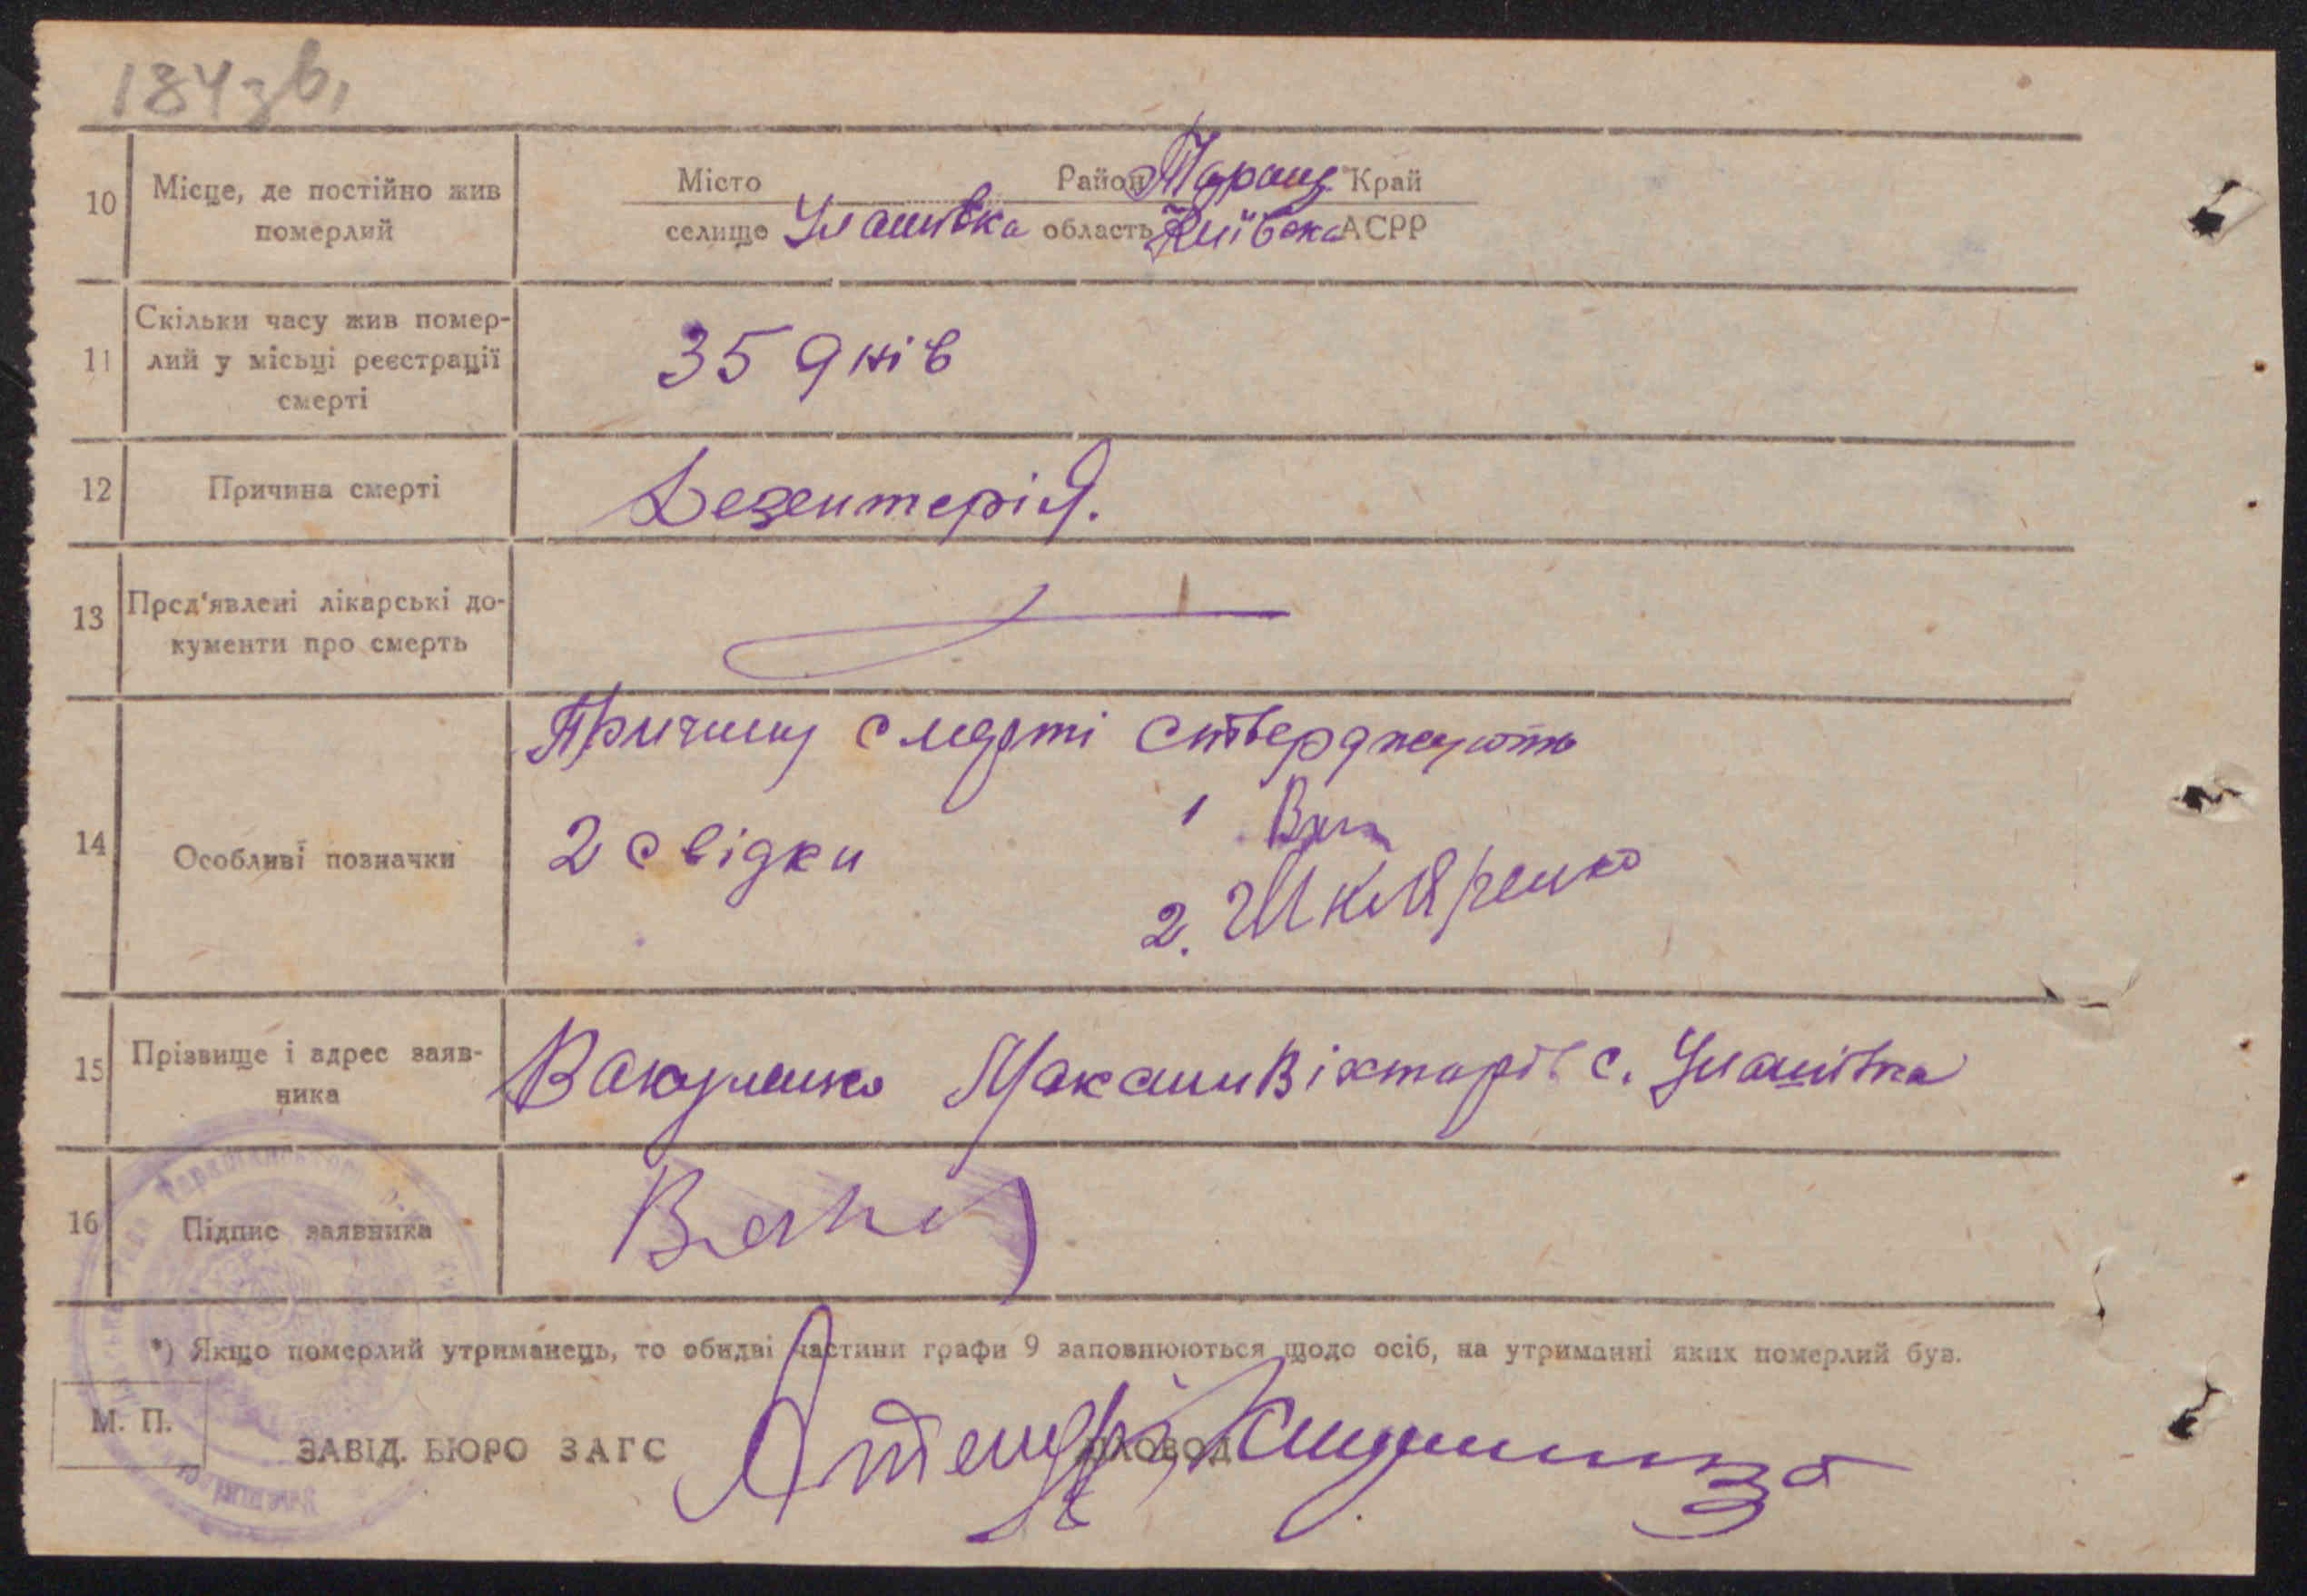 184зв,
10 Місце, де постійно жив померлий
Місто Район Таращ Край
селище Улашівка область Київська АСРР
11 Скільки часу жив помер-
лий у місьці реєстрації
смерті
35 днів
12 Причина смерті
Дезентерія.
13 Пред'явлені лікарські до-
кументи про смерть
14 Особливі позначки
Причину смерті стверджують
2 свідки 1
2. Шкляренко
15 Прізвище і адрес заяв-
ника
Вакуленко Максим Вікторів с. Улашівка
16 Підпис заявника
*) Якщо померлий утриманець, то обидві частини графи 9 заповнюються щодо осіб, на утриманні яких померлий був.
М. П.
ЗАВІД. БЮРО ЗАГС ДІЛОВОД